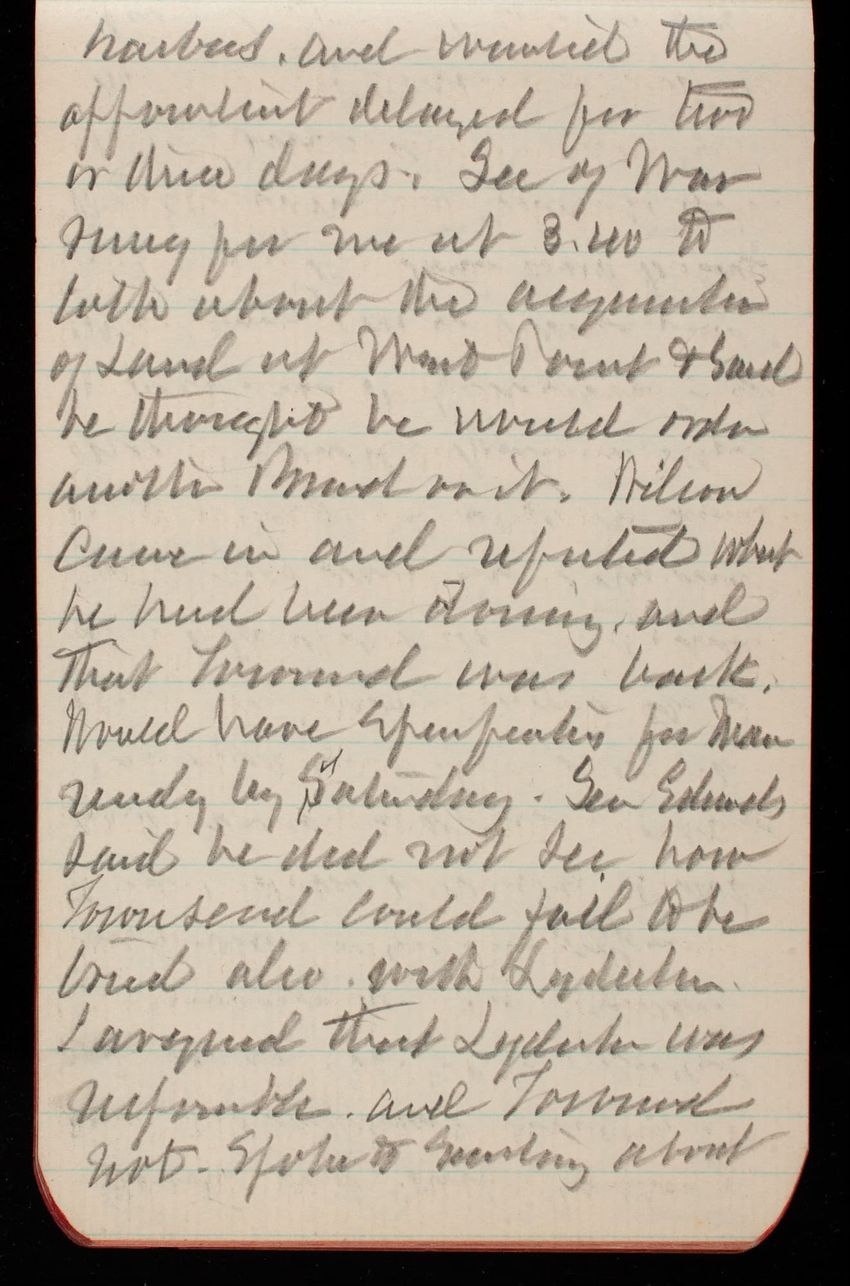 harbors. and wanted the
appointment delayed for two
or three days. Sec of War
rung for me at 3.40 to
talk about the acquisition
of Land at West Point & said
he thought he would order
another Board on it. Wilson
came in and reported what
he had been doing. and
that Townsend was back.
Would have Specifications for
ready by Saturday. Gen Edwards
said he did not see how
Townsend could fail to be
tried also. with Lydecker.
I argued that Lydecker was
responsible. and Townsend
not. Spoke to about